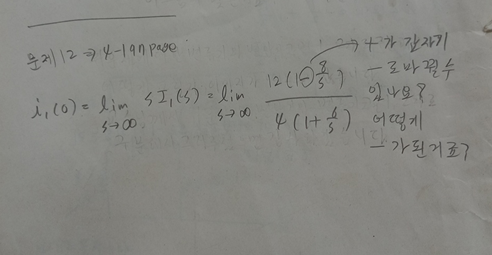 문제12 ⇒ 4-19n page
i₁(0) = lim s→∞ s I₁(s) = lim s→∞ 12(1-8/s) / 4(1+6/s)
+가 갑자기
-로 바뀔 수
있나요?
어떻게
-가 된 거죠?